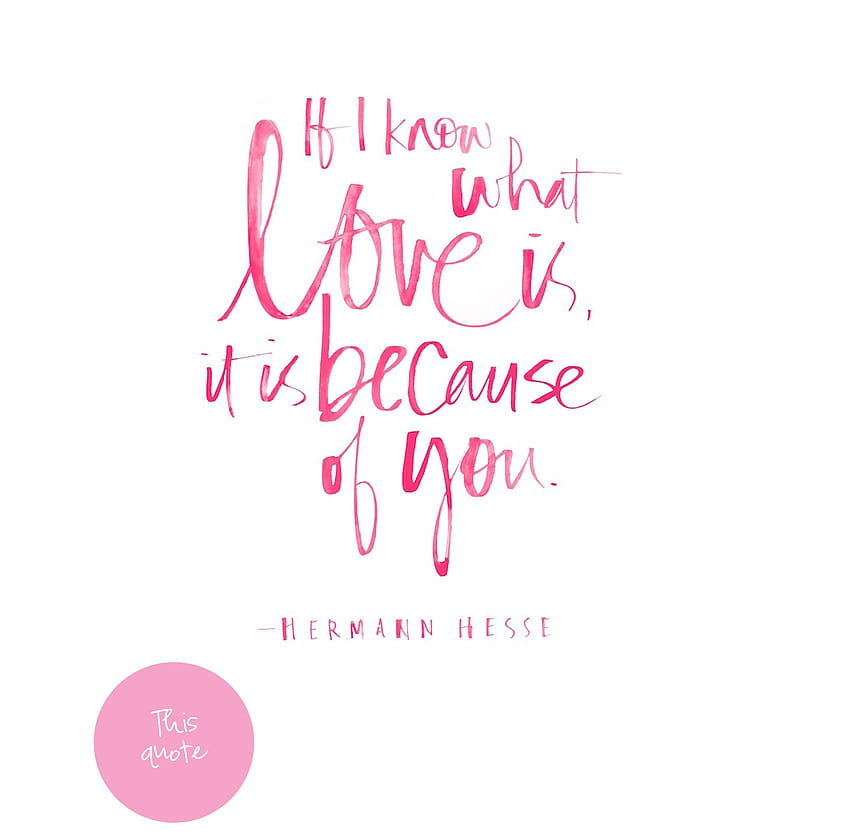 If I know
what
love is,
it is because
of you.
—HERMANN HESSE
This
quote